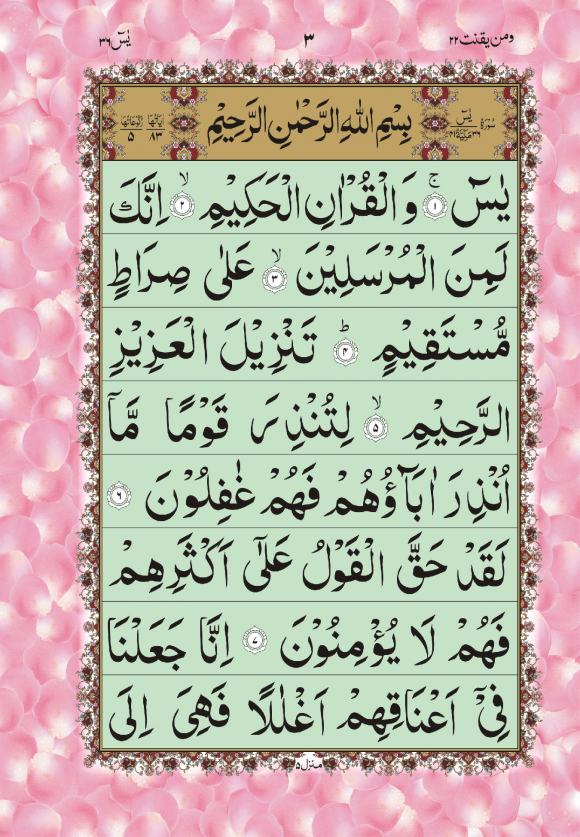 ومن یقنت ۲۲ ۳ یٰسٓ ۳۶
سُوْرَةُ یٰسٓ بِسْمِ اللهِ الرَّحْمٰنِ الرَّحِیْمِ اٰیَاتُهَا ۸۳ رُكُوْعَاتُهَا ۵
یٰسٓ ۚ‏﴿۱﴾ وَ الْقُرْاٰنِ الْحَكِیْمِ ۙ‏﴿۲﴾ اِنَّكَ
لَمِنَ الْمُرْسَلِیْنَ ۙ‏﴿۳﴾ عَلٰى صِرَاطٍ
مُّسْتَقِیْمٍ ؕ‏﴿۴﴾ تَنْزِیْلَ الْعَزِیْزِ
الرَّحِیْمِ ۙ‏﴿۵﴾ لِتُنْذِرَ قَوْمًا مَّاۤ
اُنْذِرَ اٰبَآؤُهُمْ فَهُمْ غٰفِلُوْنَ ﴿۶﴾
لَقَدْ حَقَّ الْقَوْلُ عَلٰۤى اَكْثَرِهِمْ
فَهُمْ لَا یُؤْمِنُوْنَ ﴿۷﴾ اِنَّا جَعَلْنَا
فِیْۤ اَعْنَاقِهِمْ اَغْلٰلًا فَهِیَ اِلَى
منزل ۵